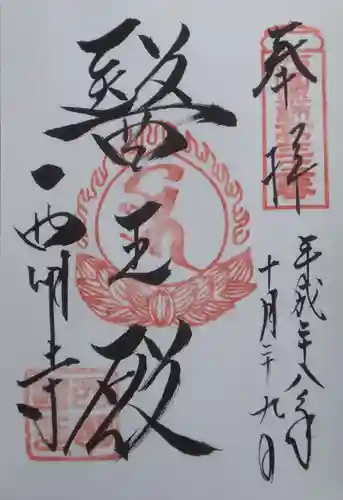 奉拝
平成二十八年
十月二十九日
醫王殿
西明寺